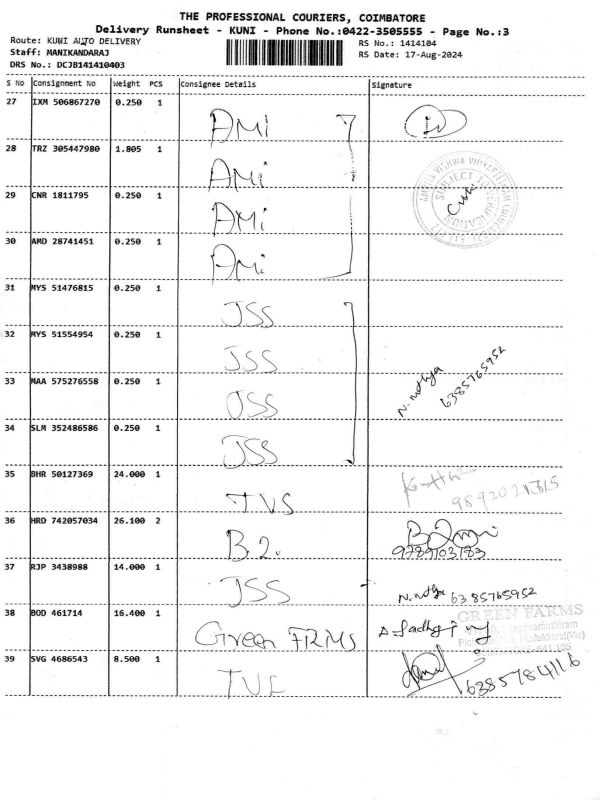 THE PROFESSIONAL COURIERS, COIMBATORE
Delivery Runsheet - KUNI - Phone No.:0422-3505555 - Page No.:3
Route: KUNI AUTO DELIVERY
RS No.: 1414104
Staff: MANIKANDARAJ
RS Date: 17-Aug-2024
DRS No.: DCJB141410403
S No Consignment No Weight PCS Consignee Details Signature
27 IXM 506867270 0.250 1 AMi
28 TRZ 305447980 1.805 1 AMi
29 CNR 1811795 0.250 1 AMi
30 AMD 28741451 0.250 1 AMi
31 MYS 51476815 0.250 1 JSS
32 MYS 51554954 0.250 1 JSS
33 MAA 575276558 0.250 1 JSS
N. nuthya 6385765952
34 SLM 352486586 0.250 1 JSS
35 BHR 50127369 24.000 1 TVS
36 HRD 742057034 26.100 2 B.2.
9789103183
37 RJP 3438988 14.000 1 JSS N. nuthya 6385765952
38 BOD 461714 16.400 1 Green FIRMS
GREEN FARMS
39 SVG 4686543 8.500 1 TVS 6385784116